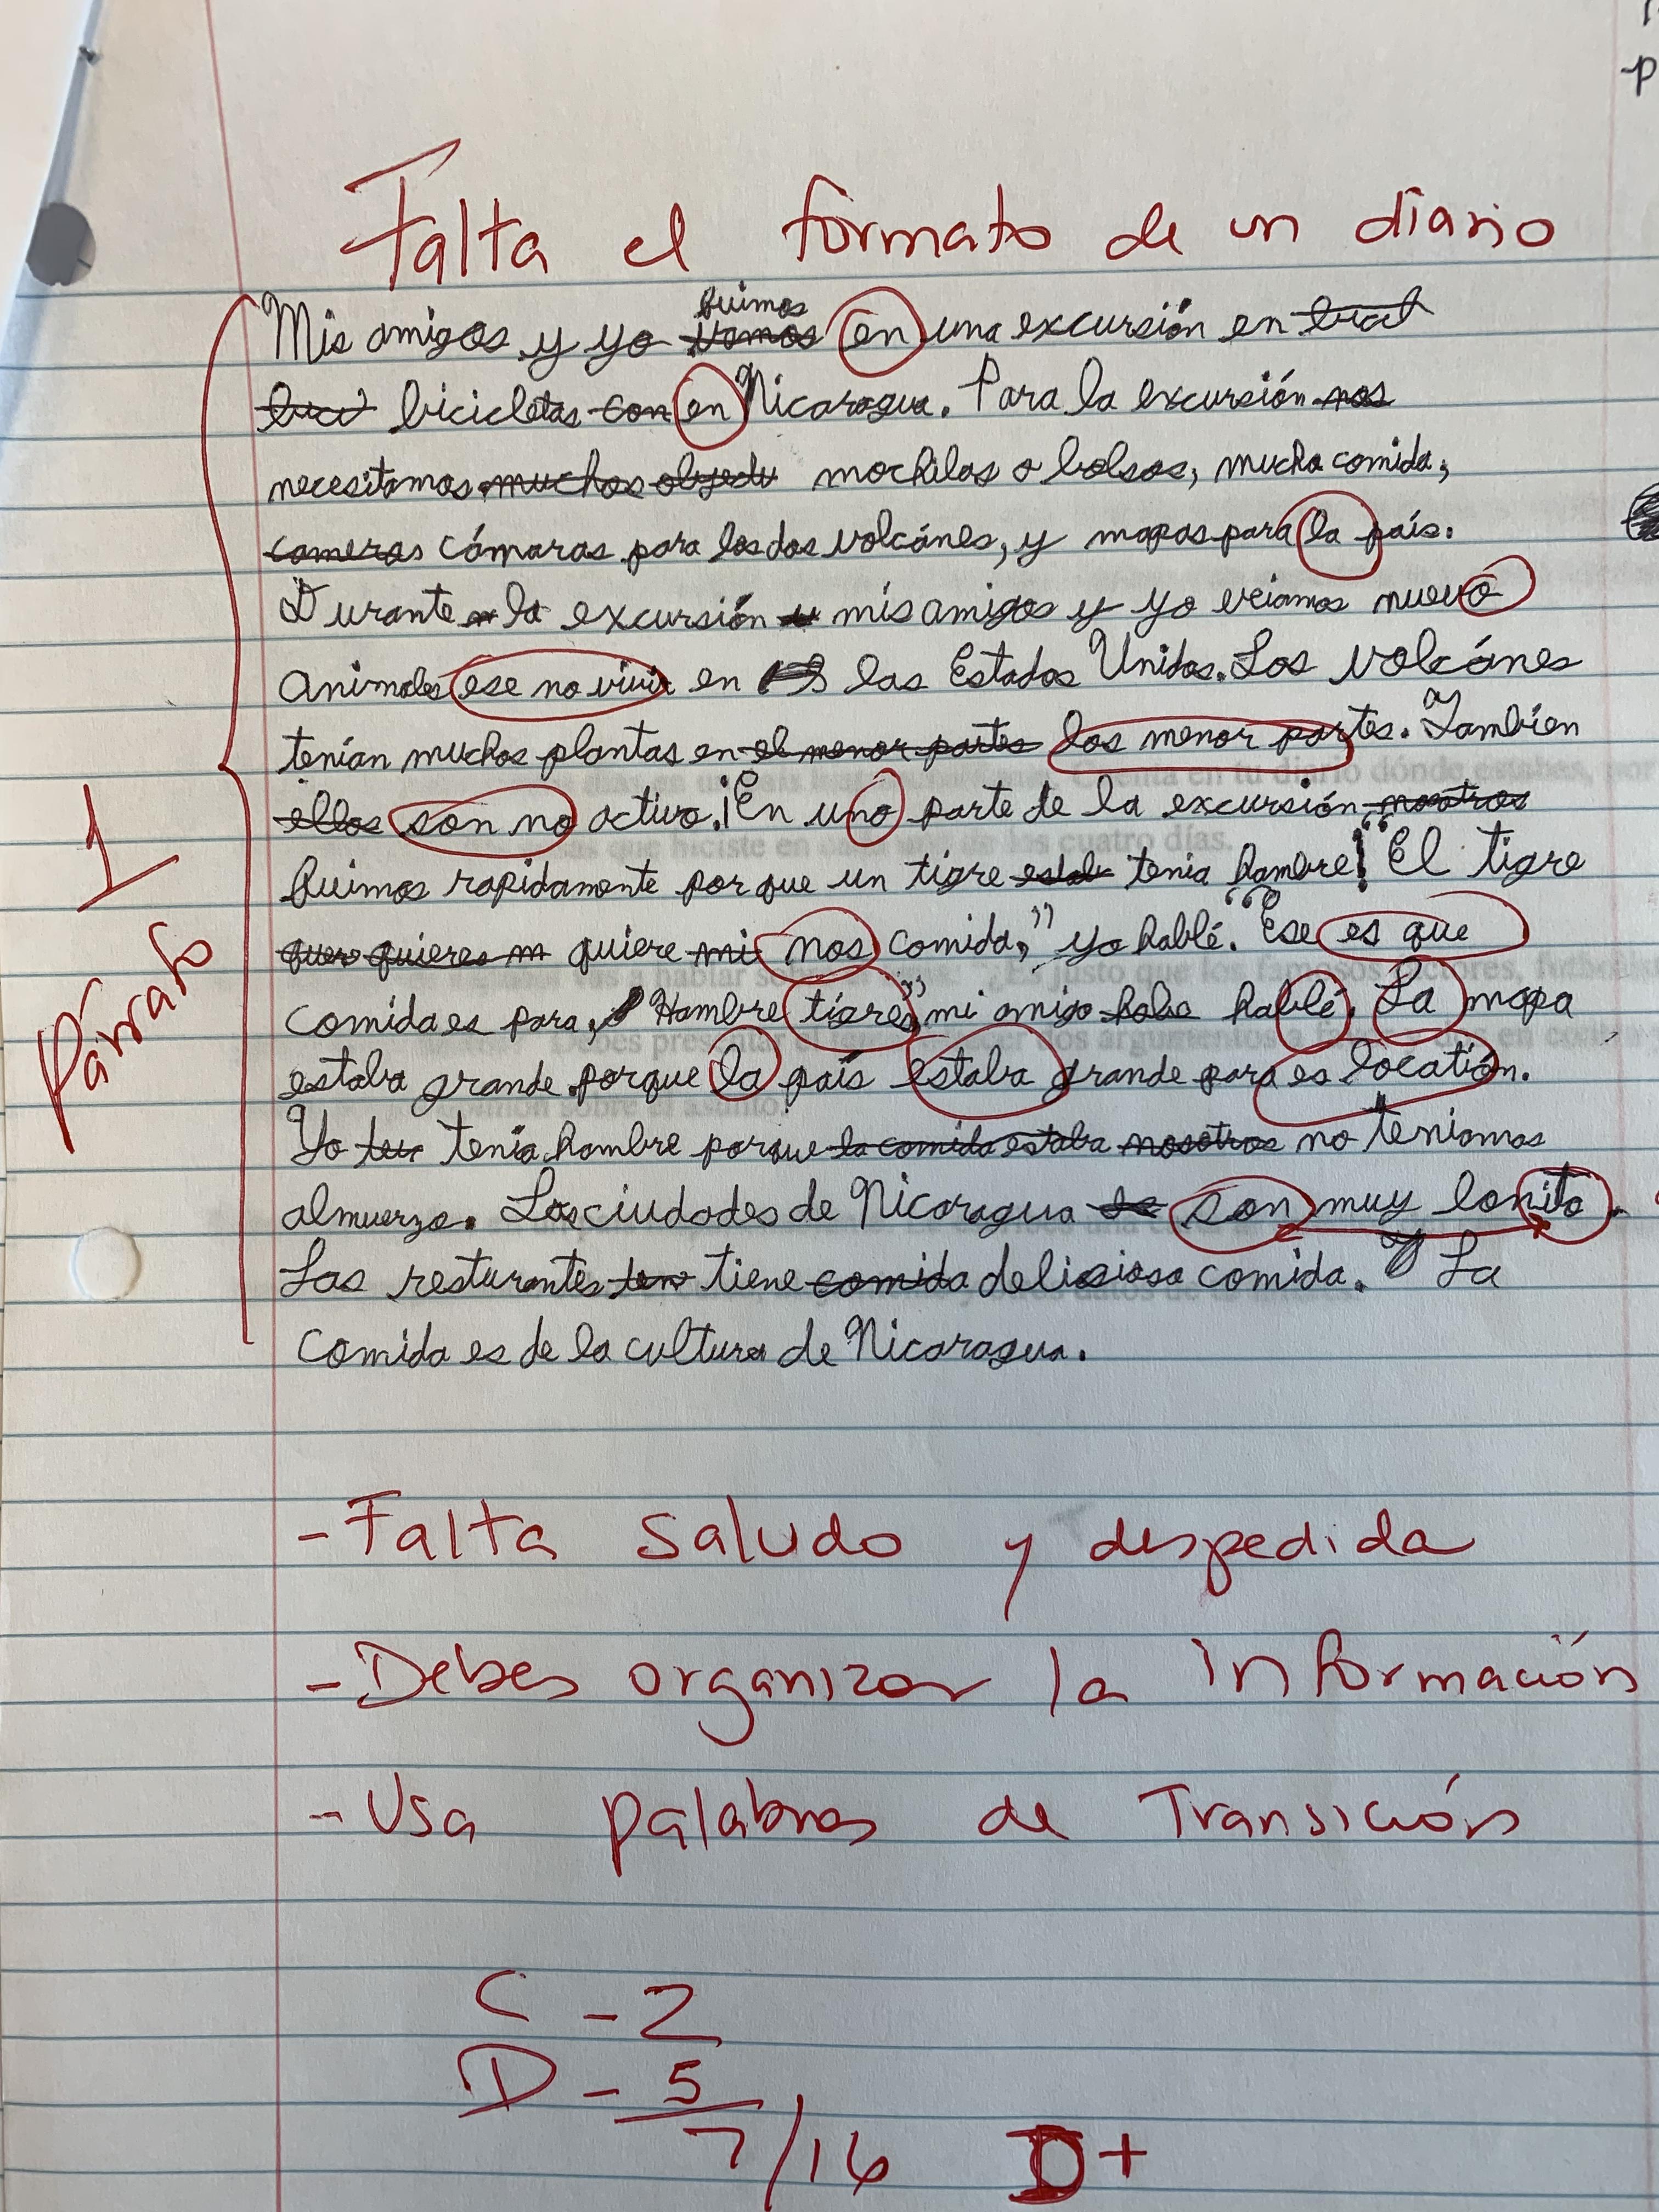 Falta el formato de un diario
fuimos
Mis amigos y yo vamos en una excursión en
bicicletas con en Nicaragua. Para la excursión nos
necesitamos muchos mochilas o bolsos, mucha comida,
cameras cámaras para los dos volcánes, y mapas para la país.
Durante la excursión mis amigos y yo veíamos nuevo
animales ese no vivir en las Estados Unidos. Los volcánes
tenían muchos plantas en el menor partes los menor partes. También
ellos son no activo. ¡En uno parte de la excursión nosotros
fuimos rapidamente por que un tigre tenia hambre! "El tigre
quiere mi nos comida," yo hablé. "Ese es que
comida es para, Hambre tigre," mi amigo hablé. La mapa
estaba grande porque la país estaba grande para es locatión.
Yo tenia hambre porque la comida estaba nosotros no teniamos
almuerzo. Las ciudades de Nicaragua son muy bonito.
Las resturantes tiene comida deliciosa comida. Y La
comida es de la cultura de Nicaragua.
1
Párrafo
- Falta saludo y despedida
- Debes organizar la información
- Usa palabras de Transición
C - 2
D - 5
7/16 D+